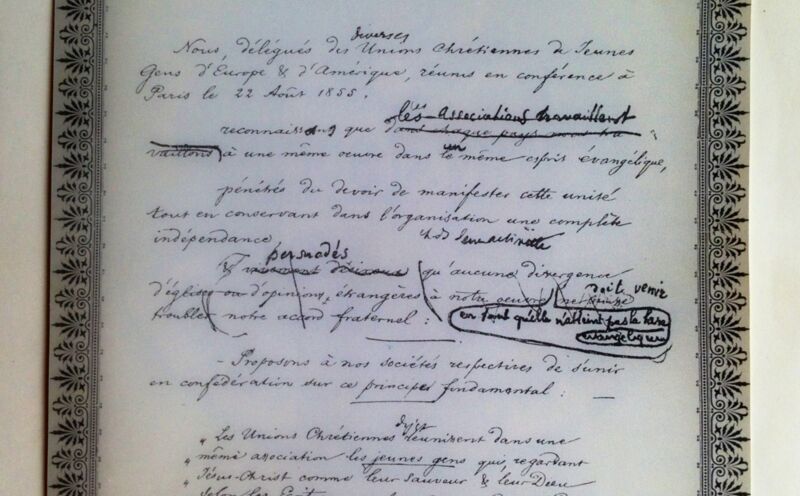 diverses
Nous, délégués des Unions Chrétiennes de Jeunes
Gens d'Europe & d'Amérique, réunis en conférence à
Paris le 22 Août 1855.
les Associations travaillent
reconnaissons que dans chaque pays nous tra
vaillons à une même oeuvre dans un même esprit évangélique,
pénétrés du devoir de manifester cette unité
tout en conservant dans l'organisation une complète
indépendance
persuadés
& vraiment qu'aucune divergence
doit venir
d'église ou d'opinions, étrangères à notre oeuvre ne puisse
troubler notre accord fraternel :
en tant qu'elle n'atteint pas la base
évangélique
- Proposons à nos sociétés respectives de s'unir
en confédération sur ce principe fondamental :
„ Les Unions Chrétiennes réunissent dans une
„ même association les jeunes gens qui, regardant
„ Jésus-Christ comme leur Sauveur & leur Dieu
selon les